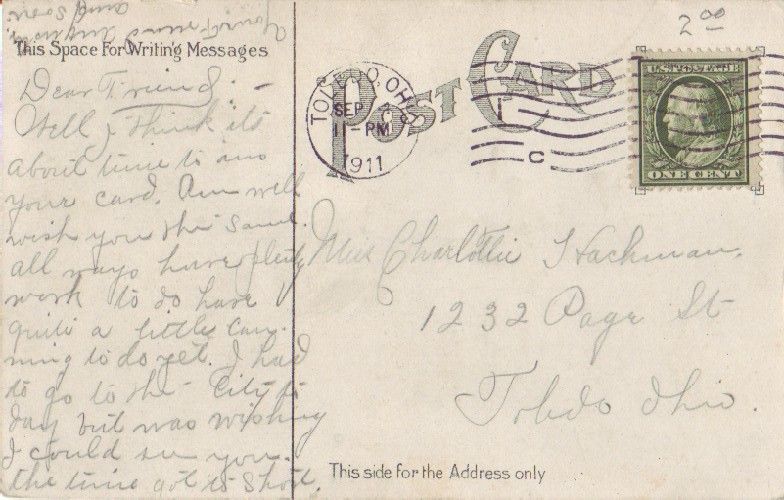 2.00
This Space For Writing Messages
POST CARD
TOLEDO, OHIO
SEP
11-PM
1911
C
U.S. POSTAGE
ONE CENT
Dear Friend:-
Well I think its
about time to ans
your card. Am well
wish you the same.
all ways have plenty
work to do have
quite a little can-
ning to do yet. I had
to go to the City to
day but was wishing
I could see you.
the time got to short.
and soon
Miss Charlottie Hackman.
1232 Page St
Toledo Ohio.
This side for the Address only